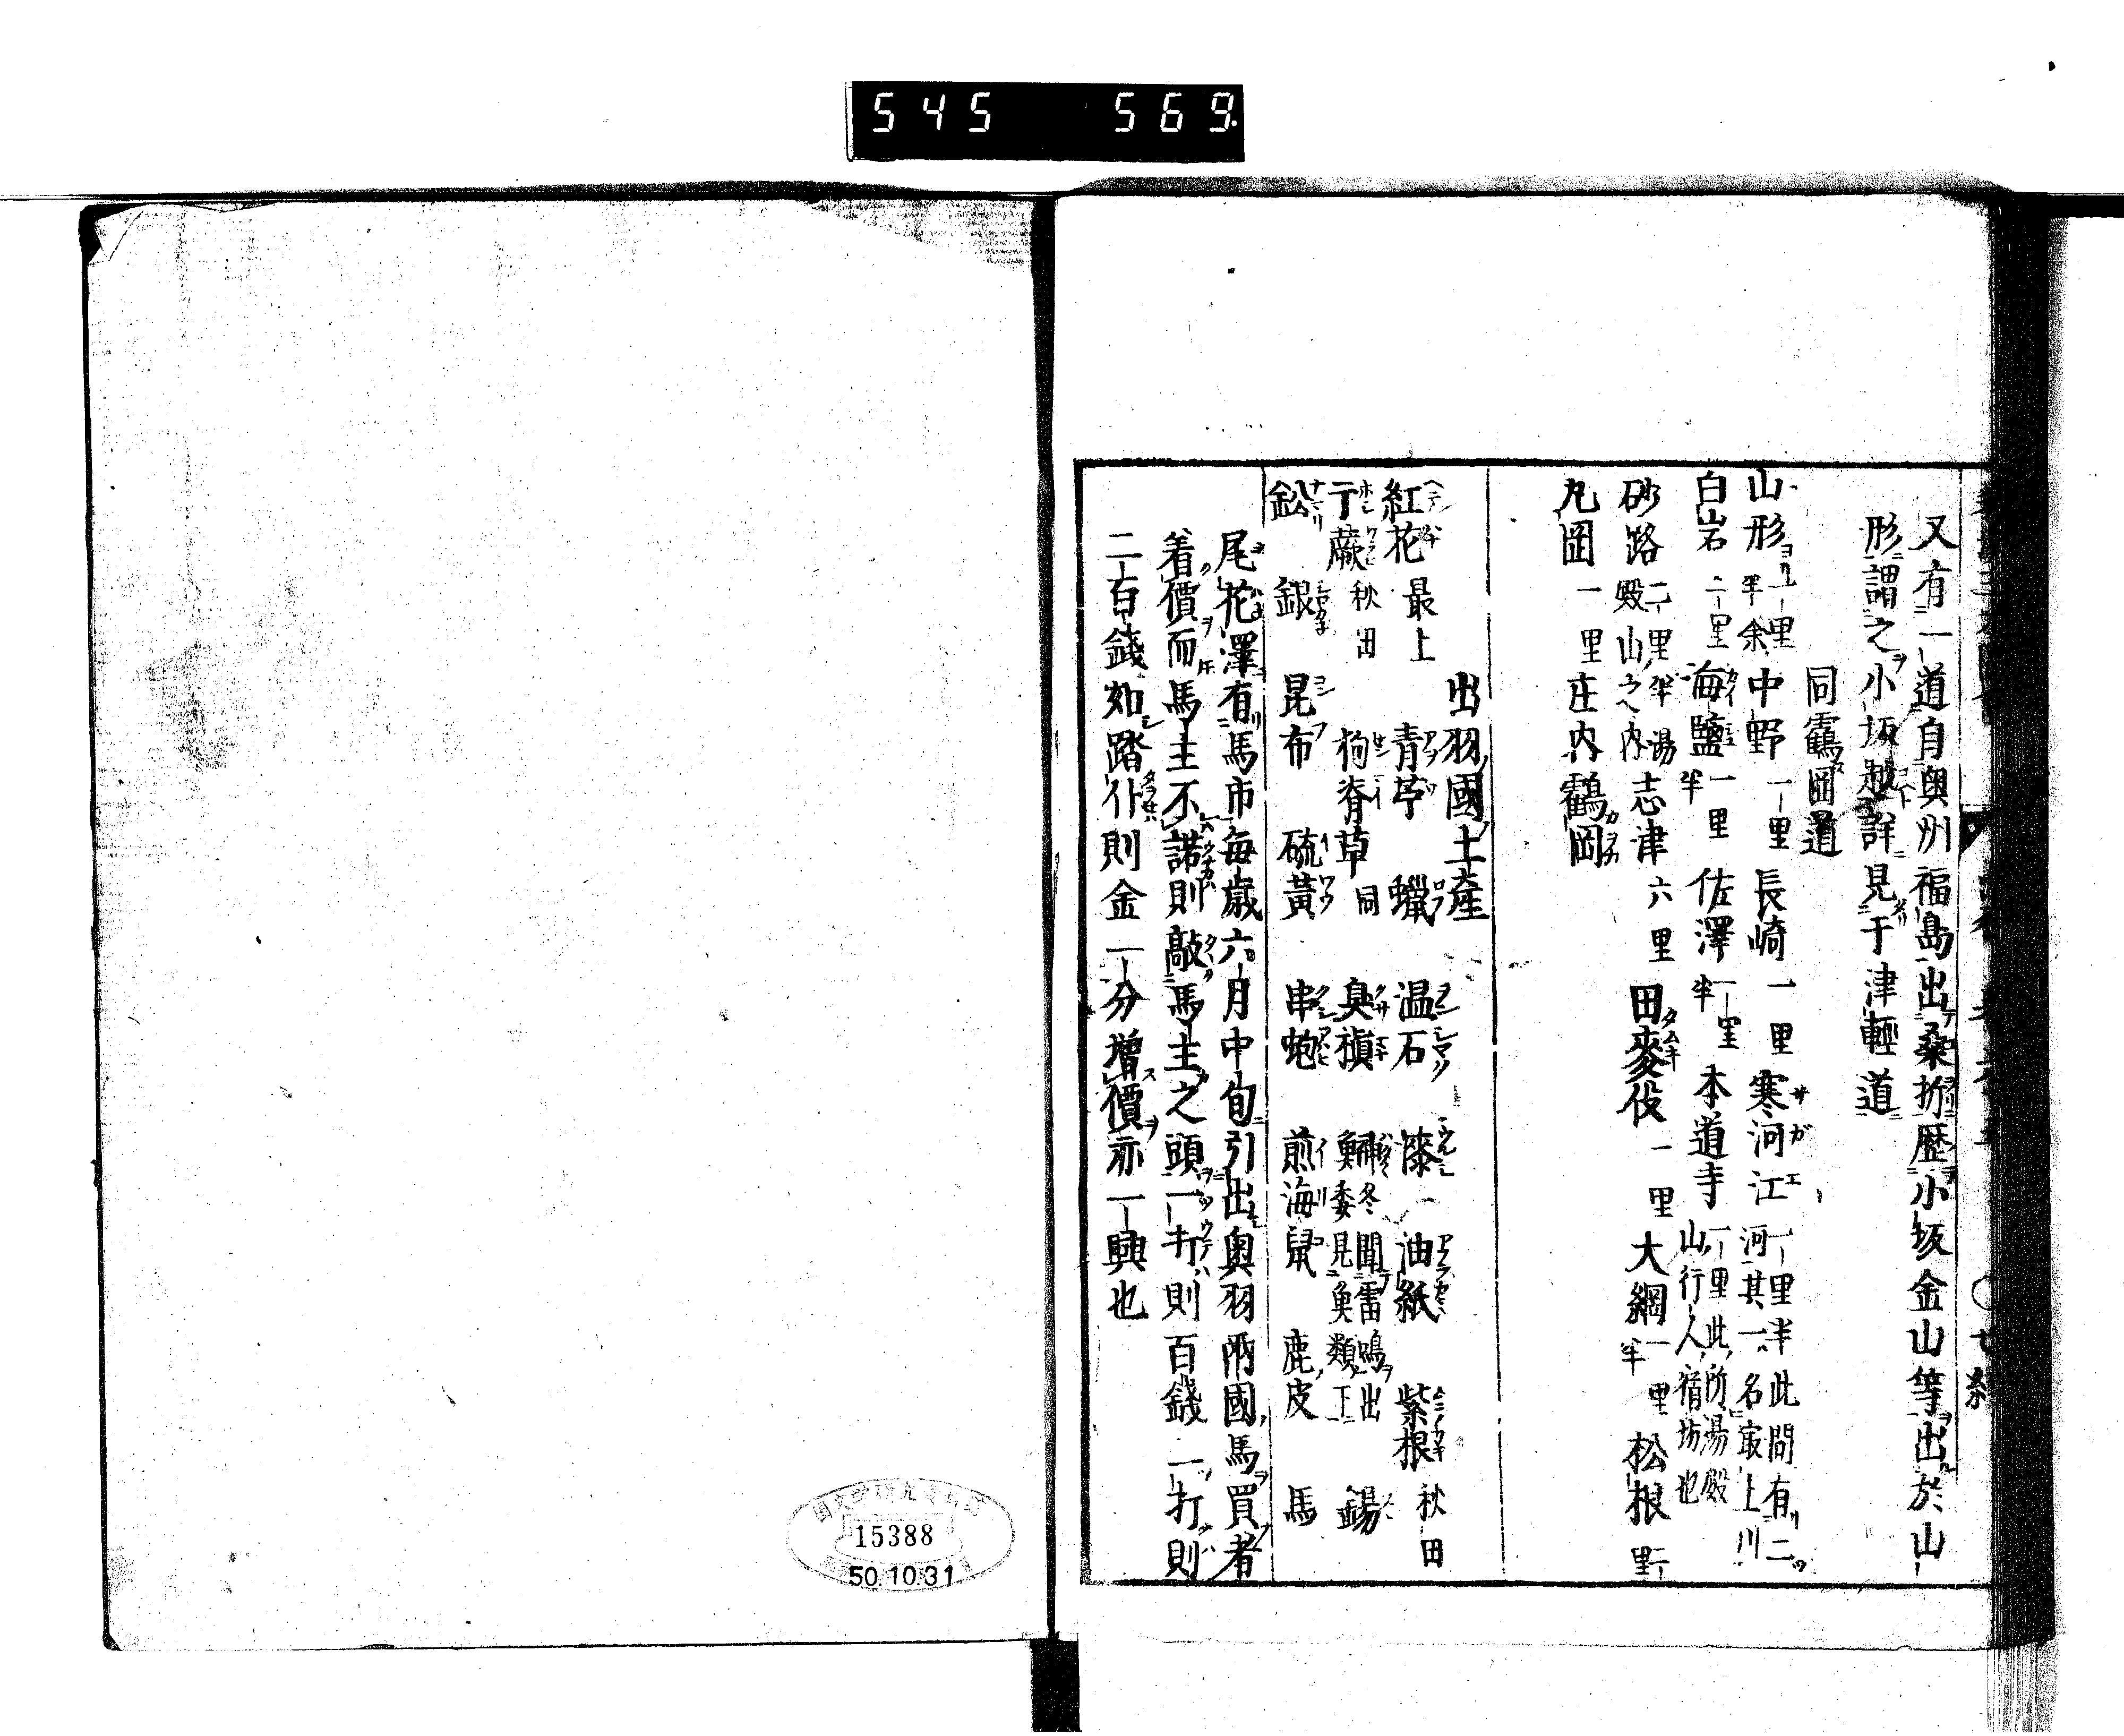 545 569
又有一道自奥州福島出桑折歴小坂金山等出於山
形謂之小坂越詳見于津輕道
同靍岡道
山形 一里半余 中野 一里 長崎 一里 寒河江 一里半此間有二河其一名最上川
白岩 二里 海鹽 一里半 佐澤 一里半 本道寺 一里此所湯殿山行人宿坊也
砂路 二里半湯殿山之内 志津 六里 田麥俣 一里 大綱 一里半 松根 一里
丸岡 一里 庄内鶴岡
出羽國土産
紅花 最上 青苧 蠟 温石 漆 油紙 紫根 秋田
蕨 秋田 狗脊草 同 臭槙 冬聞雷鳴出委見魚類下 錫
鈆 銀 昆布 硫黄 串鮑 煎海鼠 鹿皮 馬
尾花澤有馬市毎歳六月中旬引出奥羽兩國馬買者
着價而馬主不諾則敲馬主之頭一打則百錢二打則
二百錢如踏仆則金一分増價亦一興也
15388
50.10.31